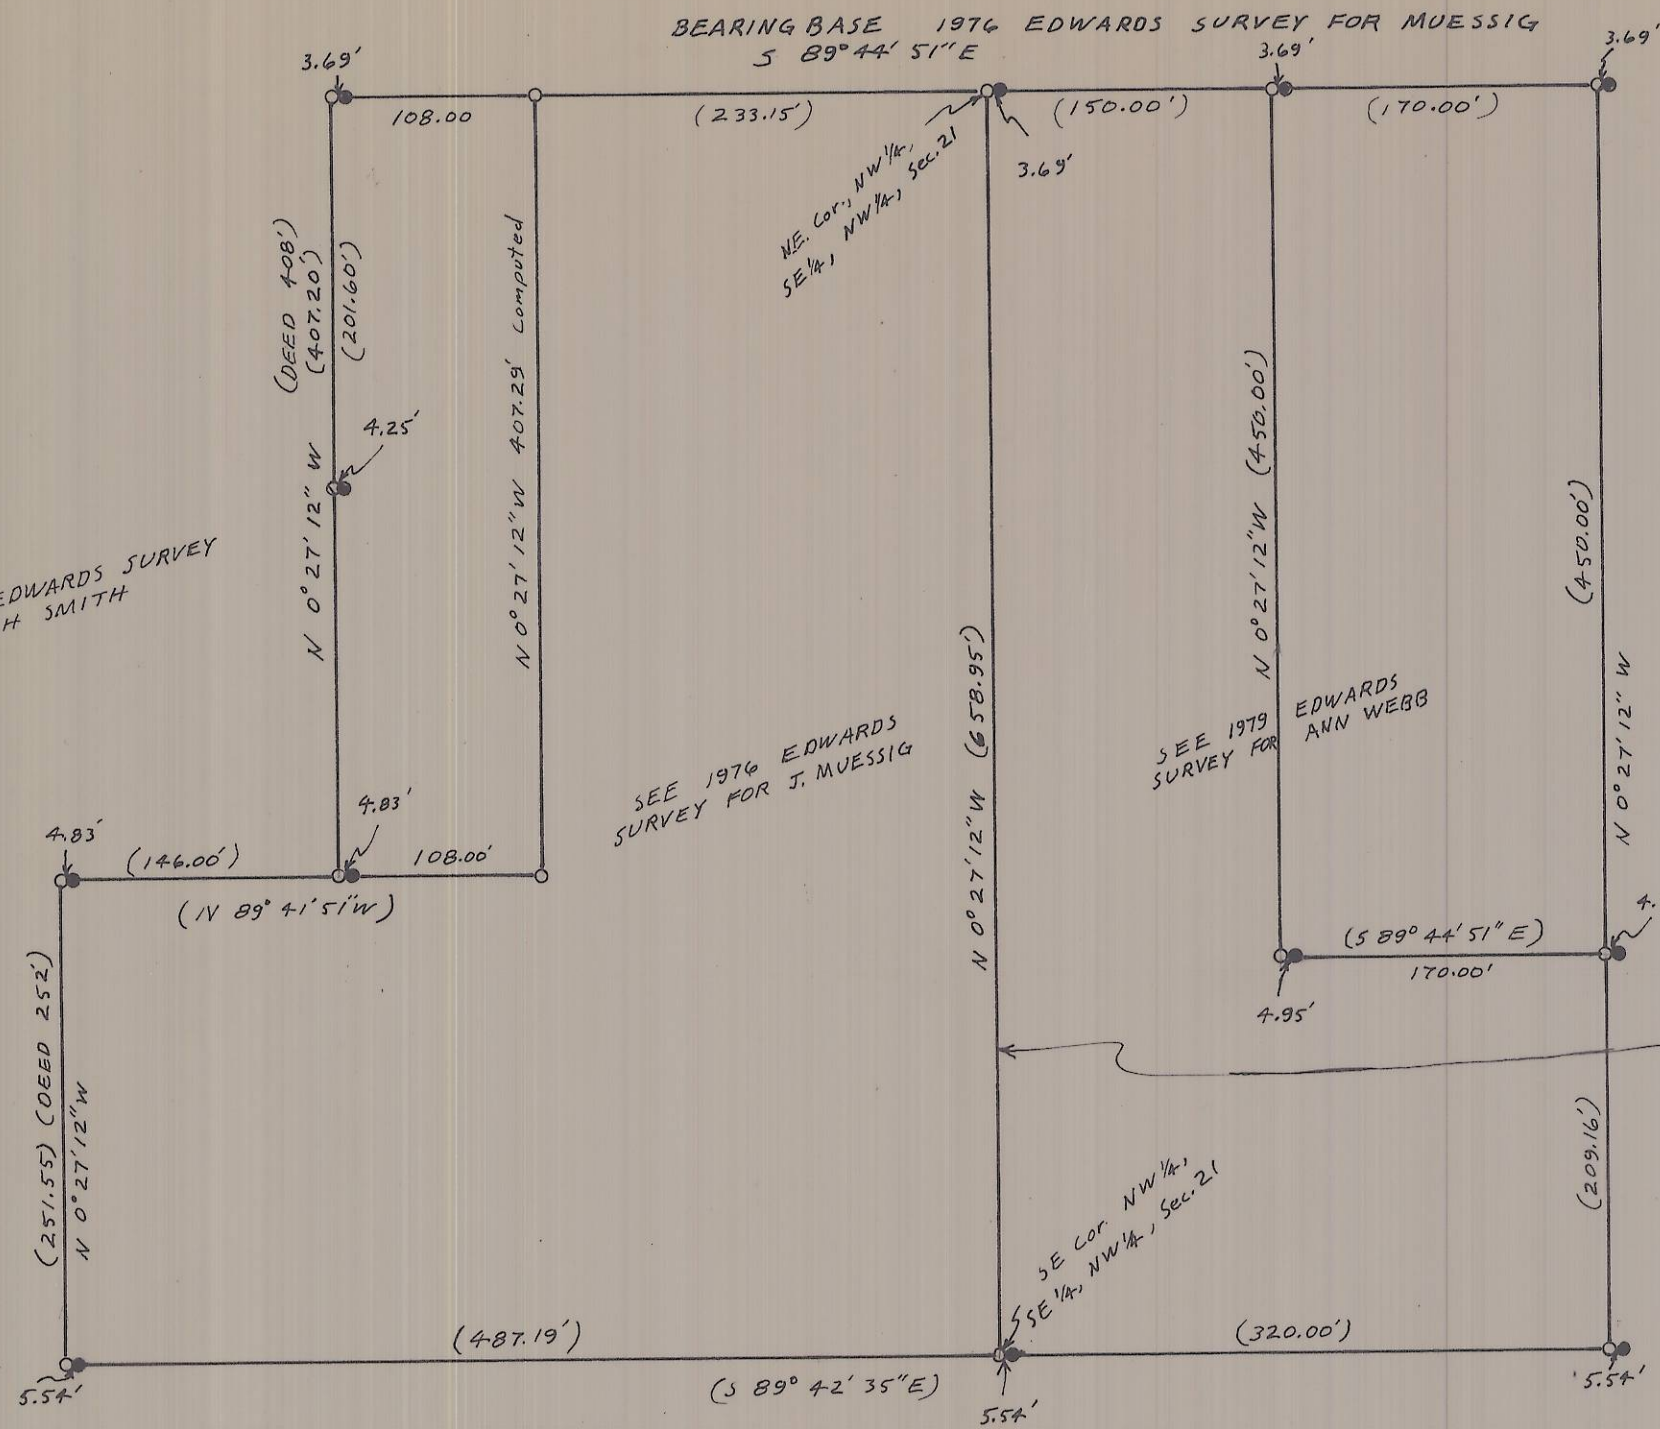 BEARING BASE 1976 EDWARDS SURVEY FOR MUESSIG
S 89° 44' 51" E
3.69'
3.69'
3.69'
108.00
(233.15')
(150.00')
(170.00')
3.69'
N.E. Cor., NW 1/4,
SE 1/4, NW 1/4, Sec. 21
(DEED 408')
(407.20')
(201.60')
N 0° 27' 12" W
4.25'
N 0° 27' 12" W 407.29' Computed
N 0° 27' 12" W (450.00')
(450.00')
N 0° 27' 12" W
EDWARDS SURVEY
H SMITH
N 0° 27' 12" W (658.95')
SEE 1976 EDWARDS
SURVEY FOR J. MUESSIG
SEE 1979 EDWARDS
SURVEY FOR ANN WEBB
4.83'
4.83'
(146.00')
108.00'
(N 89° 41' 51" W)
4.
(S 89° 44' 51" E)
170.00'
4.95'
(251.55) (DEED 252')
N 0° 27' 12" W
(209.16')
SE Cor. NW 1/4,
SE 1/4, NW 1/4, Sec. 21
(487.19')
(320.00')
(S 89° 42' 35" E)
5.54'
5.54'
5.54'